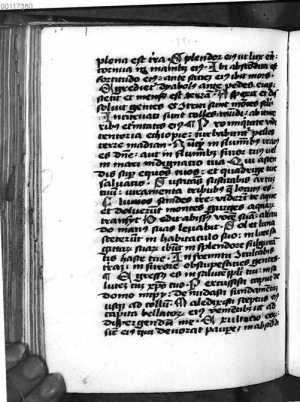 00117360
plena est tra. Splendor eiꝰ ut lux erit:
cornua in manibꝰ eiꝰ. Ibi abscondita est
fortitudo eiꝰ: ante faciē eiꝰ ibit mors.
Egrediet diabolꝰ ante pedes eiꝰ:
stetit et mensꝰ est terrā. Aspexit et dis
soluit gentes et ɔtriti sunt mōtes scli
Incuruati sunt colles mūdi: ab itine
ribꝰ eternitatis eiꝰ. Pro iniquitate vidi
tentoria ethiopie: turbabunt pelles
terre madian. Nūqd in fluminibꝰ iratꝰ
es dne: aut in fluminibꝰ furor tuꝰ vel
in mari indignatio tua. Qui ascen
dis sup equos tuos: et quadrige tue
saluatio. Suscitans suscitabis arcum
tuū: iuramenta tribubꝰ q̄ locutꝰ es.
Fluuios scindes tre: viderūt te aque
et doluerunt montes gurges aquarꝫ
transijt. Dedit abyssꝰ vocē suā: altitu
do manꝰ suas leuauit. Sol et luna
steterūt in habitaculo suo: in luce sa
gittarꝫ tuarꝫ ibūt in splendore fulgurā
tis haste tue. In fremitu ɔculcabis
trā: in furore obstupefacies gentes.
Egressꝰ es in salutē ppli tui: in sa
lutē cū xpo tuo. Percussisti caput de
domo impij: denudasti fundamentū
usqꝫ ad collū. Maledixisti sceptris eiꝰ
capiti bellatorꝫ eiꝰ: venientibꝰ ut
dispergendū me. Exultatio eorꝫ:
sic eiꝰ qui deuorat paupeꝫ in abscōdi